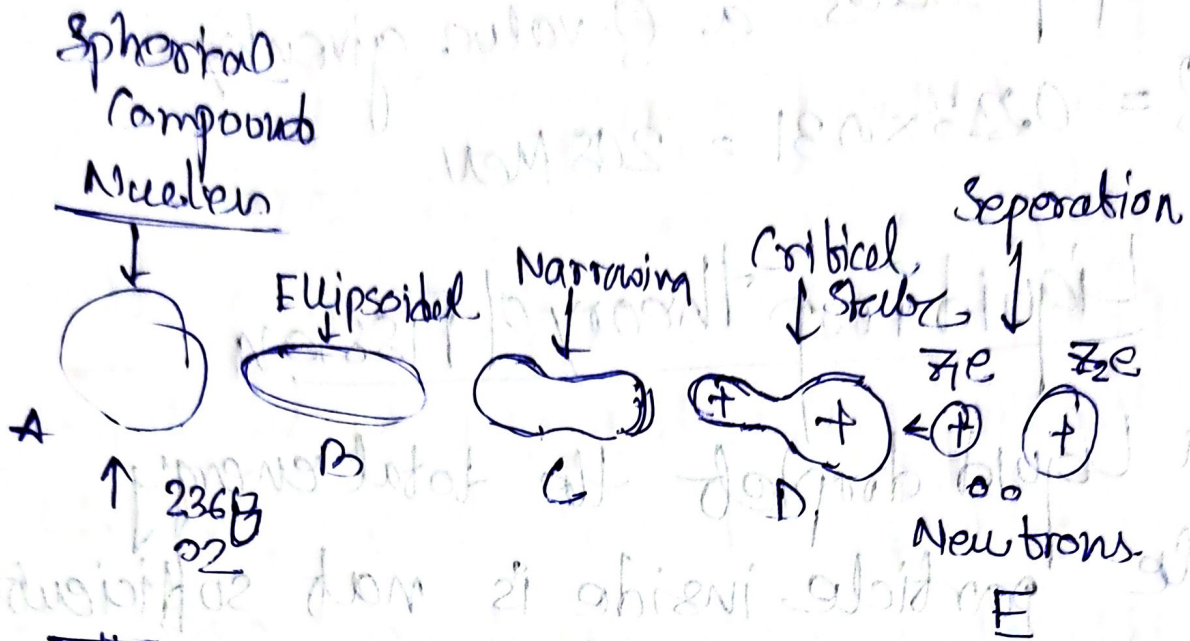 Spherical
Compound
Nucleus
Ellipsoidal
Narrowing
Critical
State
Seperation
Z₁e
Z₂e
A
B
C
D
E
236
92
+
+
+
+
Neutrons